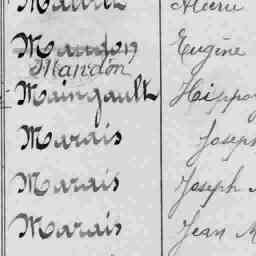 Eugène
Mandon
Maingault Hippo
Marais Joseph
Marais Joseph
Marais Jean M